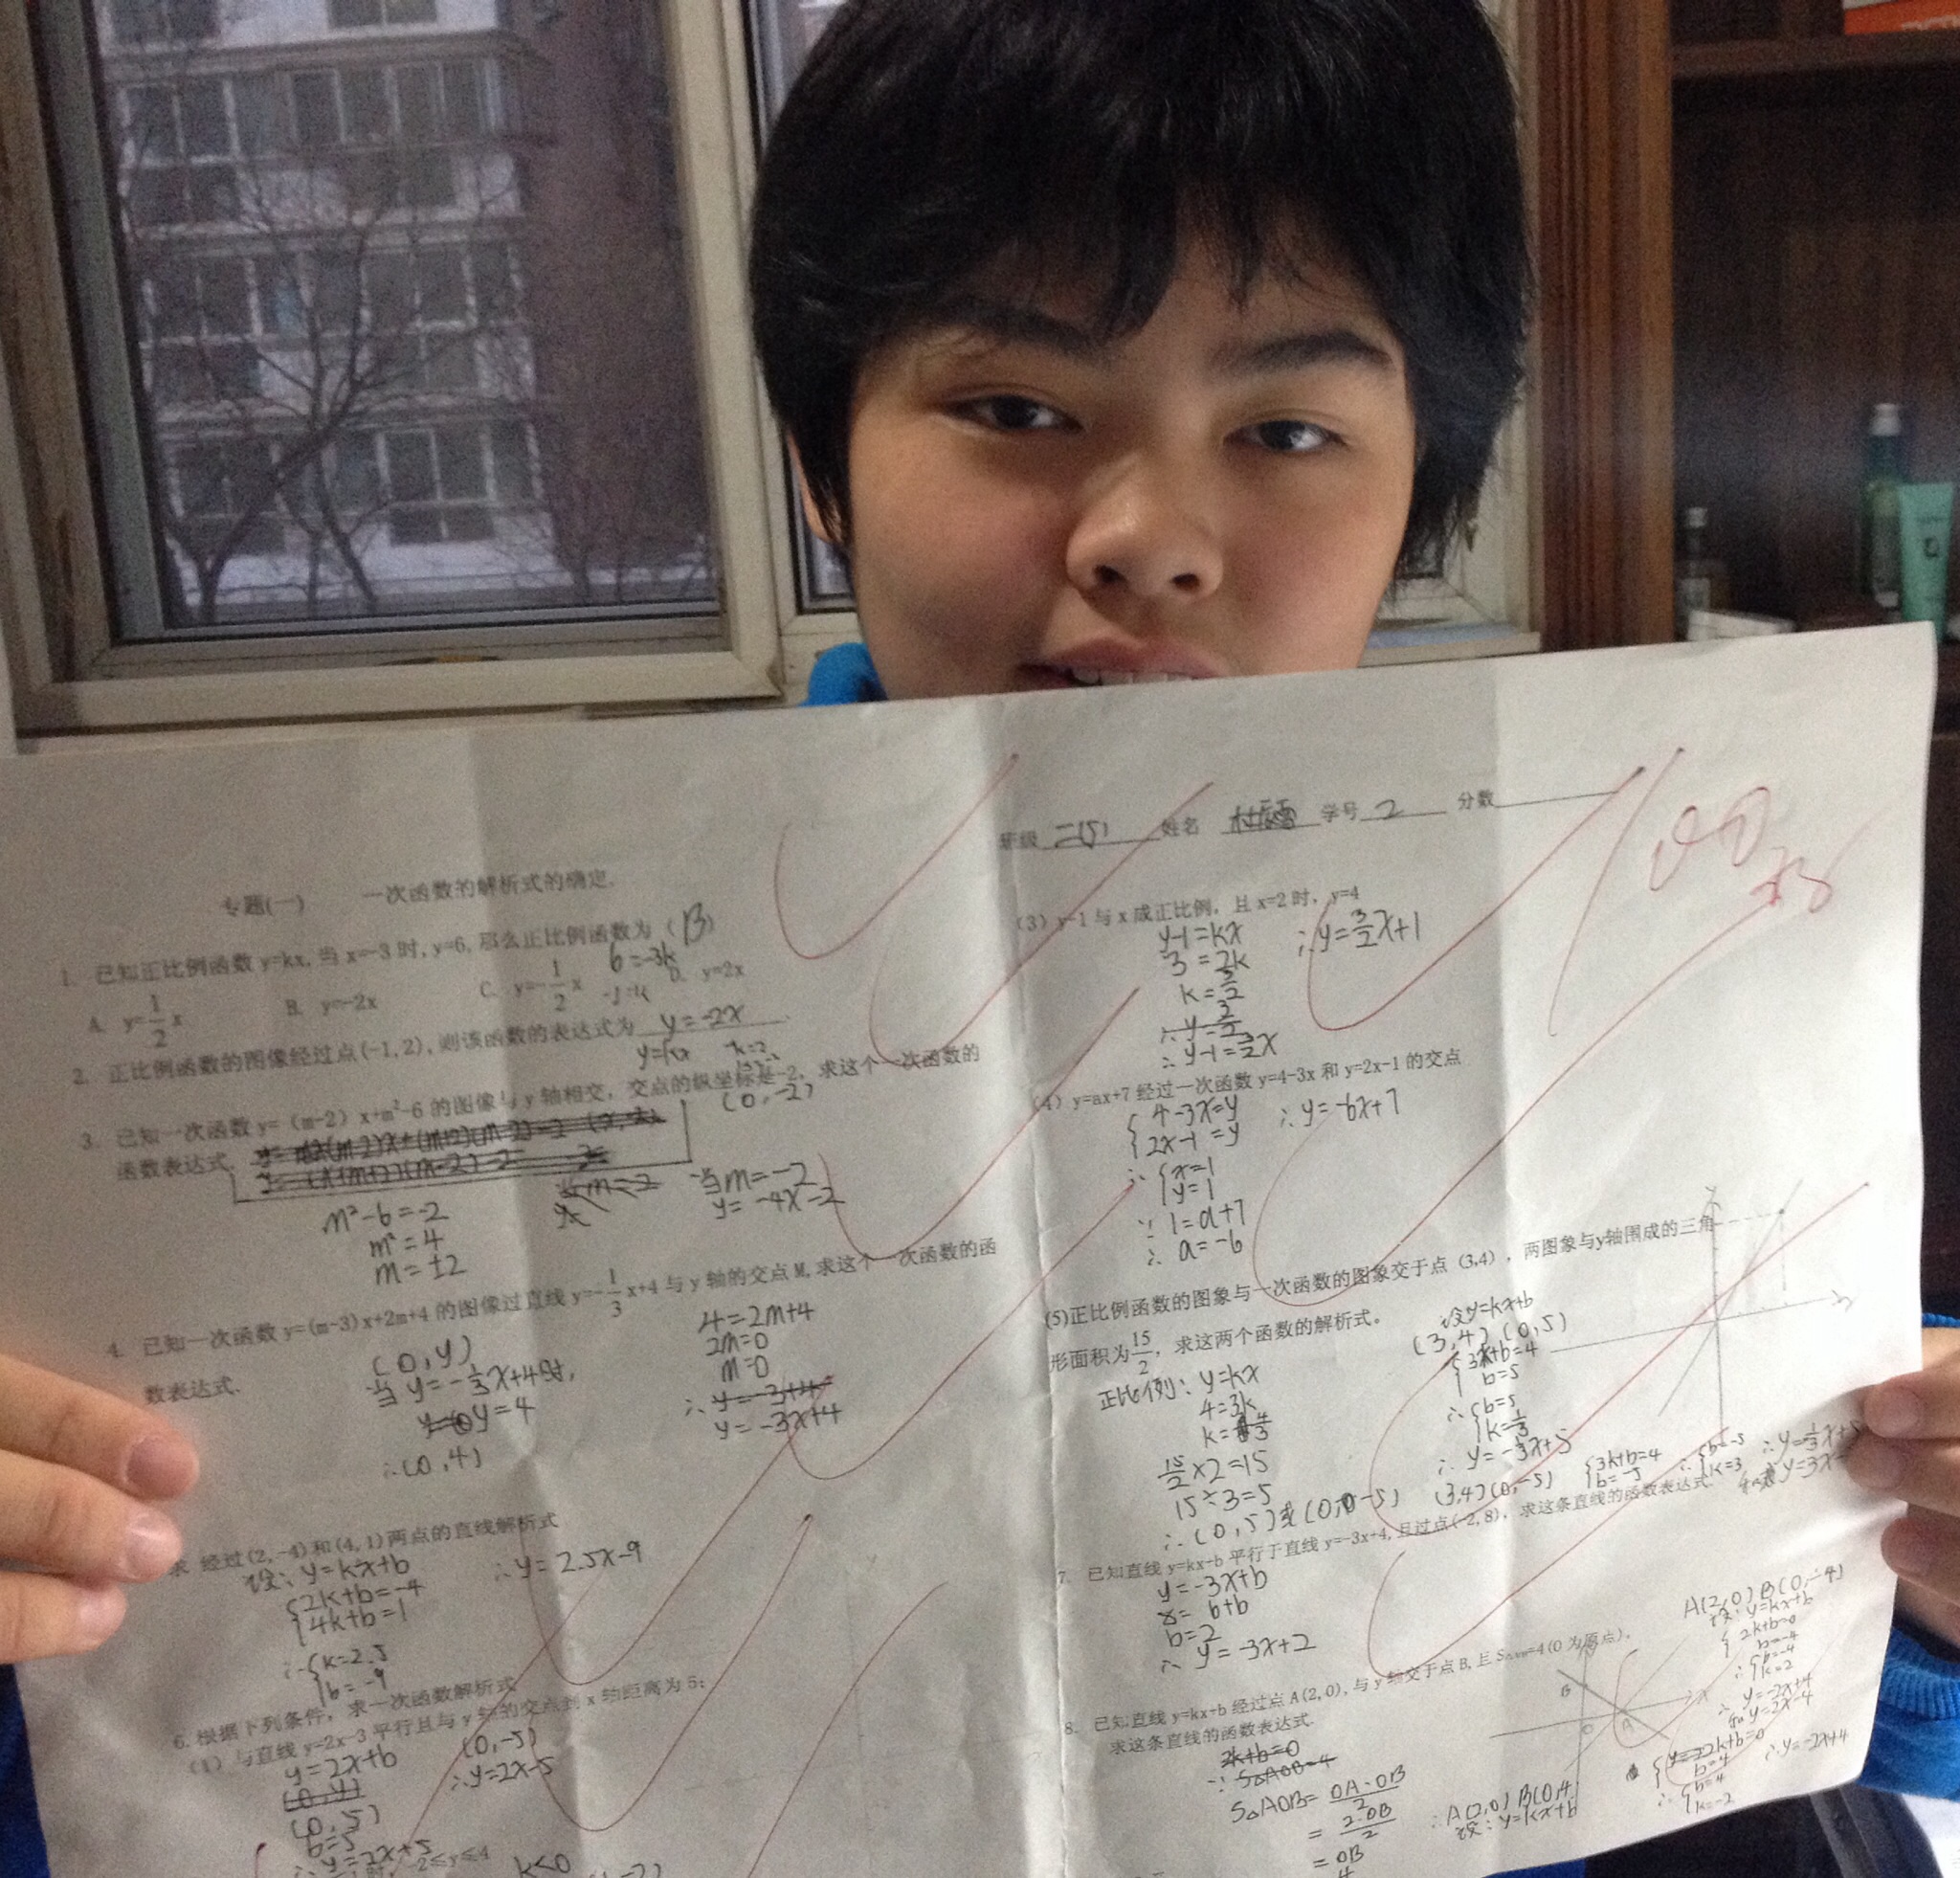 专题(一) 一次函数的解析式的确定.
1. 已知正比例函数 y=kx,当 x=-3 时,y=6,那么正比例函数为 (B)
6=-3k
A. y=1/2 x B. y=-2x C. y=-1/2 x D. y=2x
2. 正比例函数的图像经过点(-1,2),则该函数的表达式为 y=-2x
y=kx
3. 已知一次函数 y=(m-2)x+m²-6 的图像与 y 轴相交, 交点的纵坐标是-2, 求这个一次函数的
函数表达式.
(0,-2)
m²-6=-2
m²=4
m=±2
当m=-2
y=-4x-2
4. 已知一次函数 y=(m-3)x+2m+4 的图像过直线 y=-1/3 x+4 与 y 轴的交点 M,求这个一次函数的函
数表达式.
(0,y)
当 y=-1/3x+4时,
y=4
∴(0,4)
4=2m+4
2m=0
m=0
∴y=-3+4
y=-3x+4
求 经过(2,-4)和(4,1)两点的直线解析式
设:y=kx+b
2k+b=-4
4k+b=1
∴{k=2.5
b=-9
∴y=2.5x-9
6.根据下列条件, 求一次函数解析式
(1) 与直线 y=2x-3 平行且与 y 轴的交点到 x 轴距离为 5;
y=2x+b
(0,y)
(0,5)
b=5
∴y=2x+5
(0,-5)
∴y=2x-5
-2≤y≤4
k<0
班级 二(5) 姓名 学号 2 分数
100
(3) y-1 与 x 成正比例, 且 x=2 时, y=4
y-1=kx
3=2k
k=3/2
∴y-1=3/2x
∴y=3/2x+1
(4) y=ax+7 经过一次函数 y=4-3x 和 y=2x-1 的交点
{4-3x=y
2x-1=y
∴{x=1
y=1
∵1=a+7
∴a=-6
∴y=-6x+7
(5)正比例函数的图象与一次函数的图象交于点 (3,4), 两图象与y轴围成的三角
形面积为15/2, 求这两个函数的解析式。
正比例:y=kx
4=3k
15/2×2=15
15÷3=5
∴(0,5)或(0,-5)
设y=kx+b
(3,4)(0,5)
b=5
∴{b=5
∴y=-1/3x+5
(3,4)(0,-5)
{3k+b=4
b=-5
∴{b=-5
k=3
7. 已知直线 y=kx+b 平行于直线 y=-3x+4,且过点(-2,8), 求这条直线的函数表达式.
y=-3x+b
8=6+b
b=2
∴y=-3x+2
8. 已知直线 y=kx+b 经过点 A(2,0), 与 y 轴交于点 B,且 S△AOB=4(O 为原点),
求这条直线的函数表达式.
2k+b=0
∵S△AOB=4
S△AOB=OA·OB/2
=2·OB/2
=OB
4
∴A(2,0)B(0,4)
设:y=kx+b
b=4
∴{b=4
k=-2
∴y=-2x+4
A(2,0)B(0,-4)
设:y=kx+b
{2k+b=0
b=-4
∴{b=-4
k=2
∴y=-2x+4
和y=2x-4